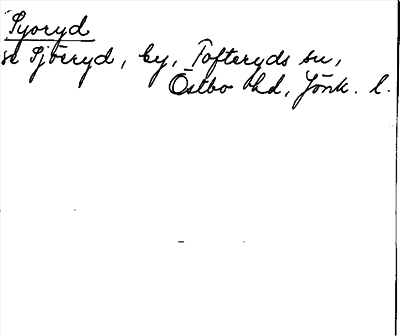 Pyoryd
se Pjöeryd, by, Tofteryds sn,
Östbo hd, Jönk. l.